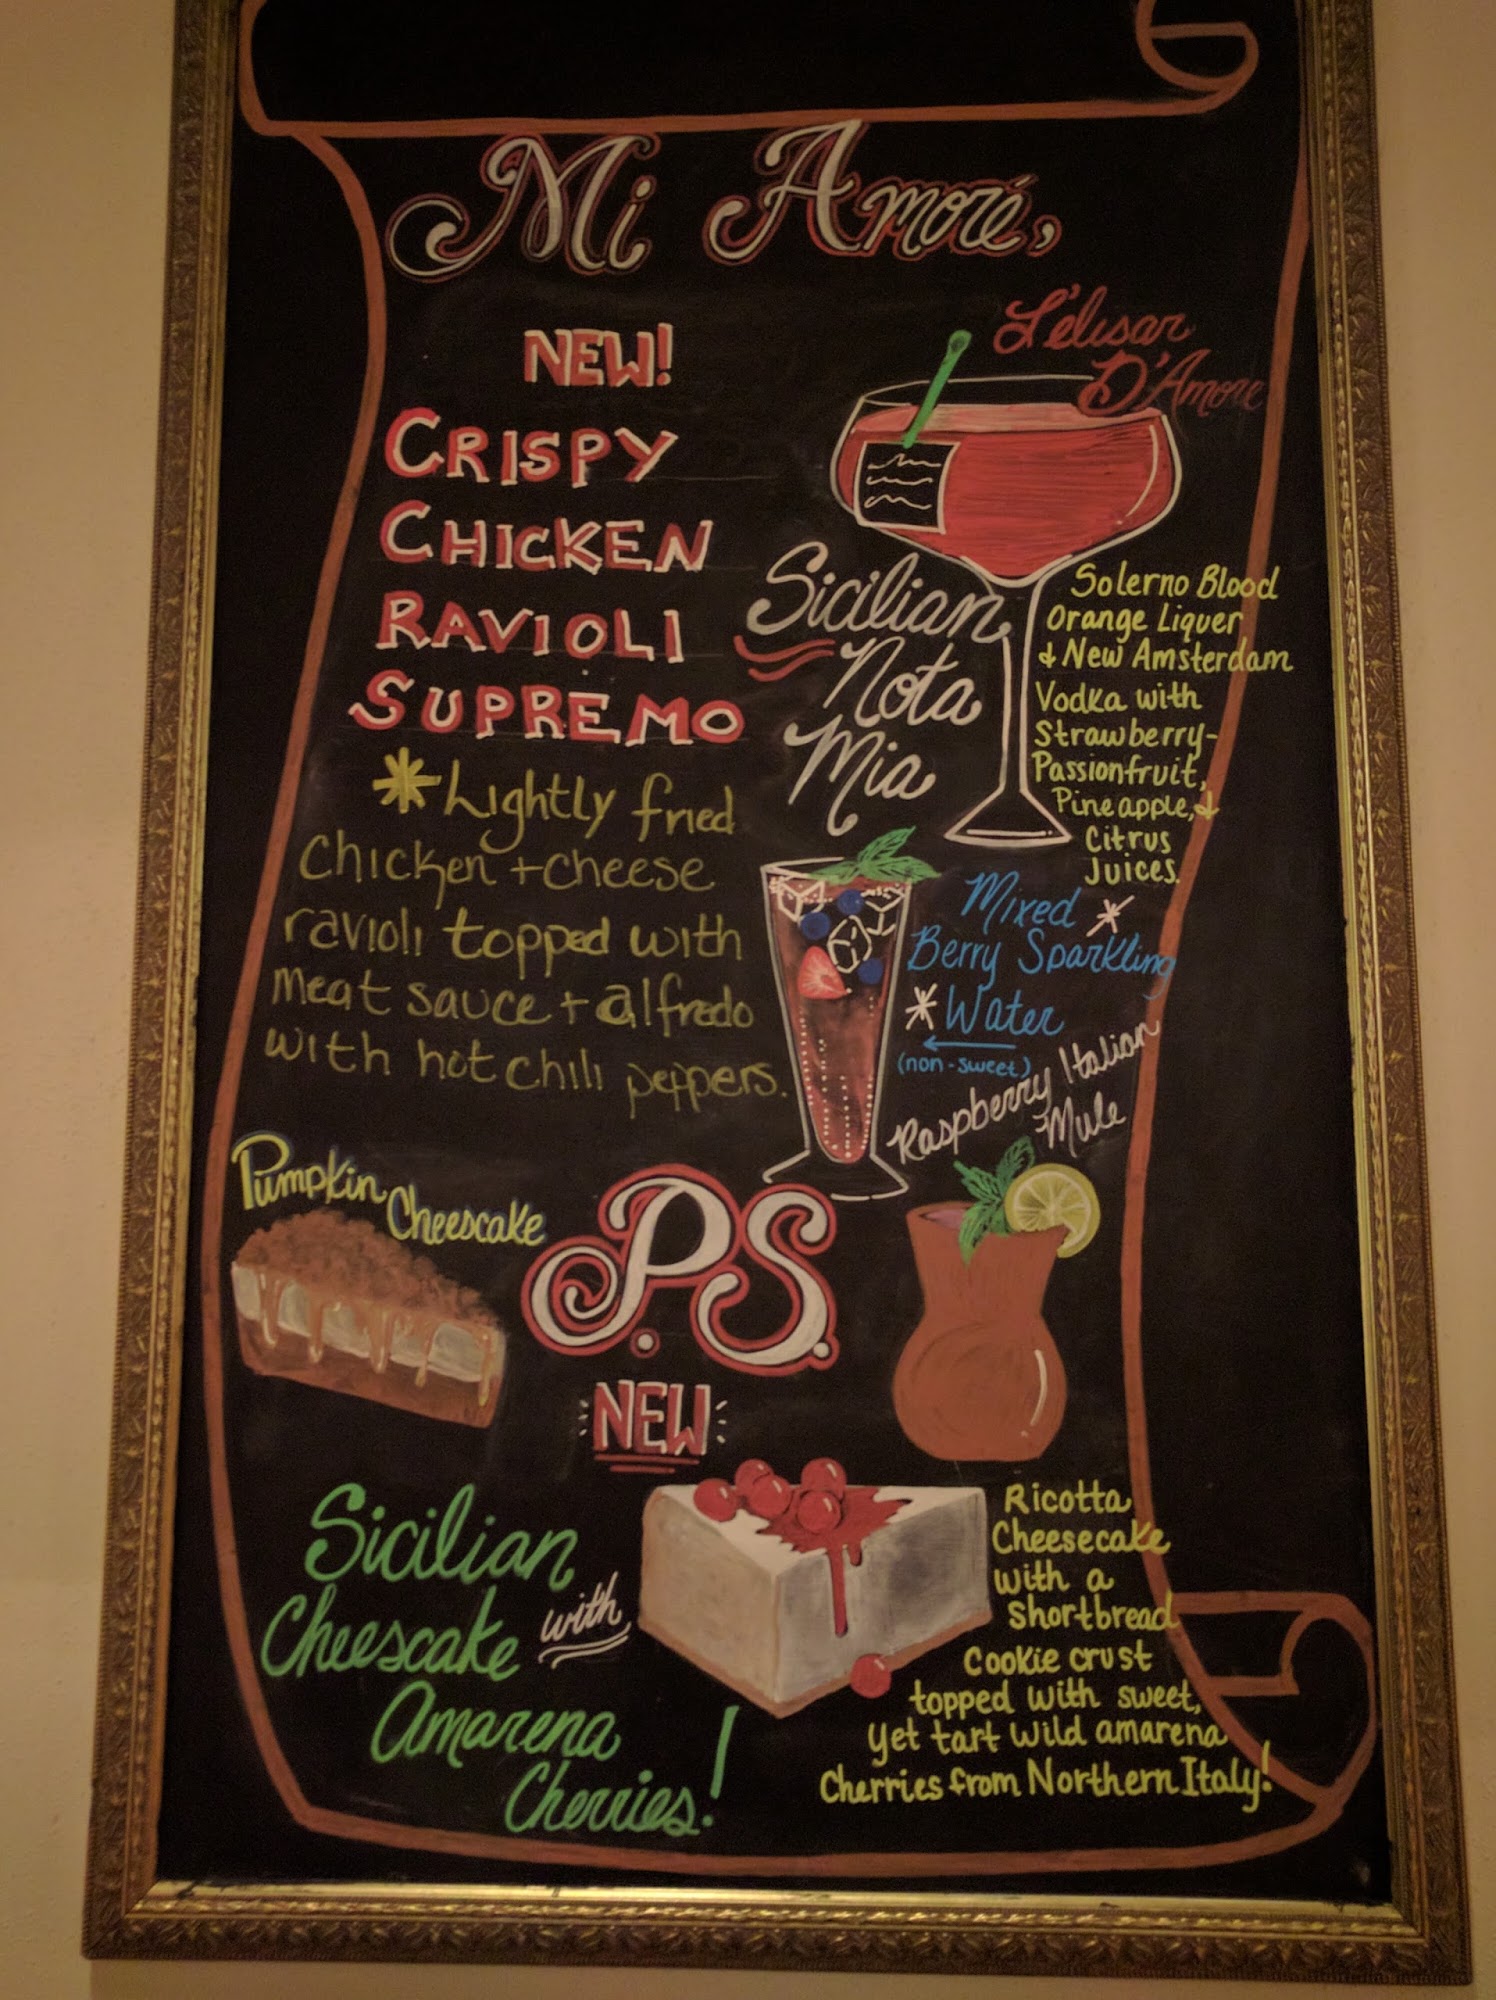 Mi Amoré,
NEW!
CRISPY
CHICKEN
RAVIOLI
SUPREMO
*Lightly fried
chicken + cheese
ravioli topped with
meat sauce + alfredo
with hot chili peppers.
L'elisar
D'Amore
Sicilian
Nota
Mia
Solerno Blood
Orange Liquer
& New Amsterdam
Vodka with
Strawberry-
Passionfruit,
Pineapple, &
Citrus
Juices.
Mixed *
Berry Sparkling
* Water
(non-sweet)
Raspberry Italian
Mule
Pumpkin
Cheesecake
P.S.
NEW
Sicilian
Cheescake with
Amarena
Cherries!
Ricotta
Cheesecake
with a
Shortbread
Cookie crust
topped with sweet,
yet tart wild amarena
Cherries from Northern Italy!